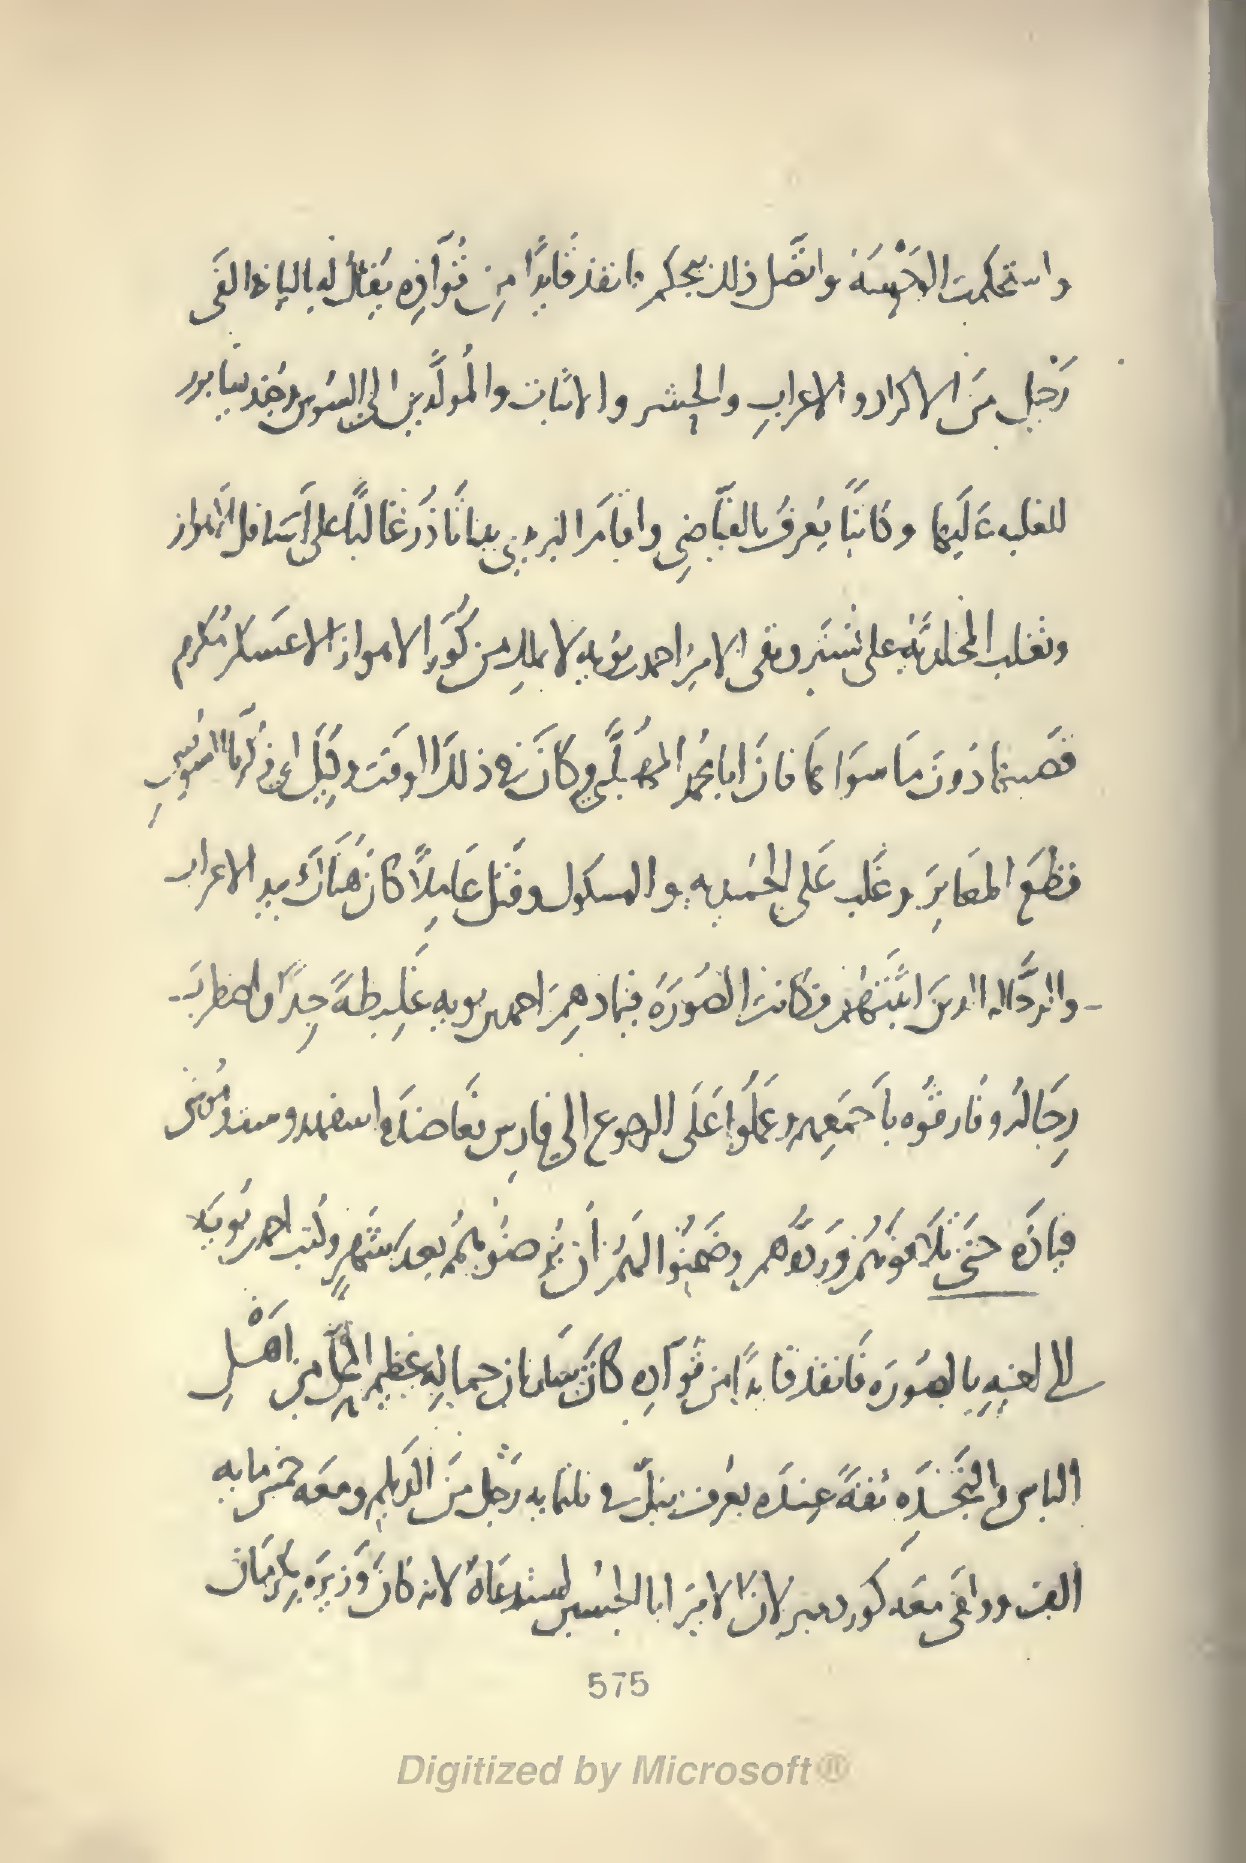 واستحكمت الوحشة واتصل ذلك ببجكم فانفذ قايدًا من قُوّاده يقال له بالبا في الفى
رَجل من الاكراد والاعراب والحشر والاثبات والمولدين الى السوس وجندنيسابور
للغلبه عليها وكاتبًا يُعرف بالفيّاضى واقام البريدى ببناتاذر غالبًا على اسافل الاهواز
وتغلب المخلديّة على تستر وبقى الامير احمد بن بويه لا يملك من كُوَر الاهواز الا عسكر مُكرم
قصبتها دون ما سواها فان ابا محمد المهلّبى وكان فى ذلك الوقت وكيل ابى زكريا السوسى
فقطع المعابر وغلب على الحميديه والمسكول وقتل عاملًا كان هناك بيد الاعراب
والرجّاله الذين اثبتهم فكانت الصورة فيما دهم احمد بن بويه غليظة جدًا واضطرب
رجاله وفارقوه باجمعهم وعملوا على الرجوع الى فارس فعاضده اسفهدوست وموسى
فياذه حتى تلافوهم وردّوهم وضمنوا لهم أن يُرضوهم بعد شهر وكتب احمد بن بويه
الى اخيه بالصورة فانفذ قايدًا من قوّاده كان سار بان جماله عظيم المحل من اهل
الباس والنجده ثقة عنده يعرف ببلّ فى ثلثمايه رجل من الديلم ومعه خمس مايه
الف ووافى معه كوردفير لان الامير ابا الحسين استدعاه لانه كان وزيره بكرمان
575
Digitized by Microsoft®